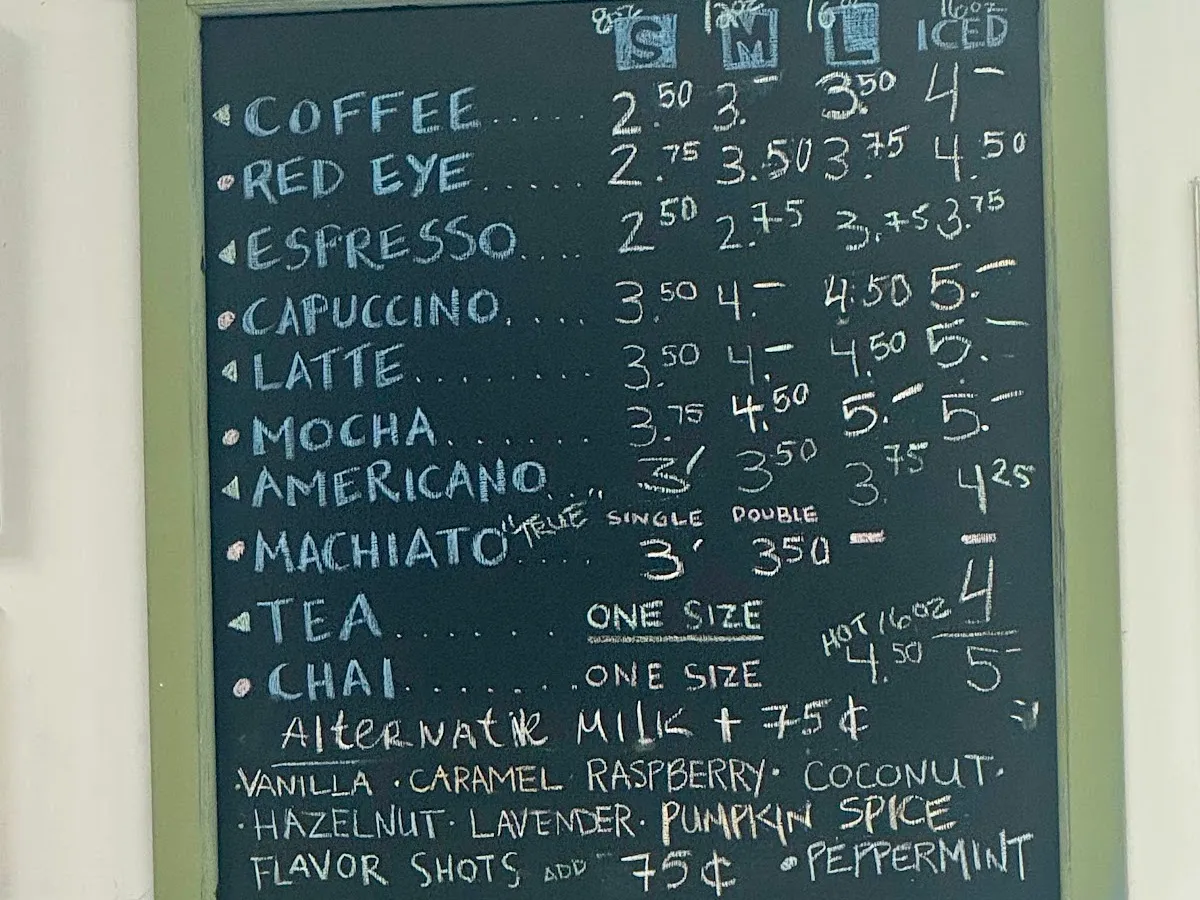 8oz 12oz 16oz 16oz
S M L ICED
COFFEE...... 2.50 3.– 3.50 4–
RED EYE...... 2.75 3.50 3.75 4.50
ESPRESSO.... 2.50 2.75 3.75 3.75
CAPUCCINO..... 3.50 4.– 4.50 5.–
LATTE......... 3.50 4.– 4.50 5.–
MOCHA....... 3.75 4.50 5.– 5.–
AMERICANO.... 3 3.50 3.75 4.25
"TRUE" SINGLE DOUBLE
MACHIATO.... 3 350 – –
TEA....... ONE SIZE 4
HOT 16oz
CHAI....... ONE SIZE 4.50 5–
AlterNative MILK + 75¢
·VANILLA ·CARAMEL RASPBERRY· COCONUT·
·HAZELNUT· LAVENDER· PUMPKIN SPICE
FLAVOR SHOTS ADD 75¢ •PEPPERMINT